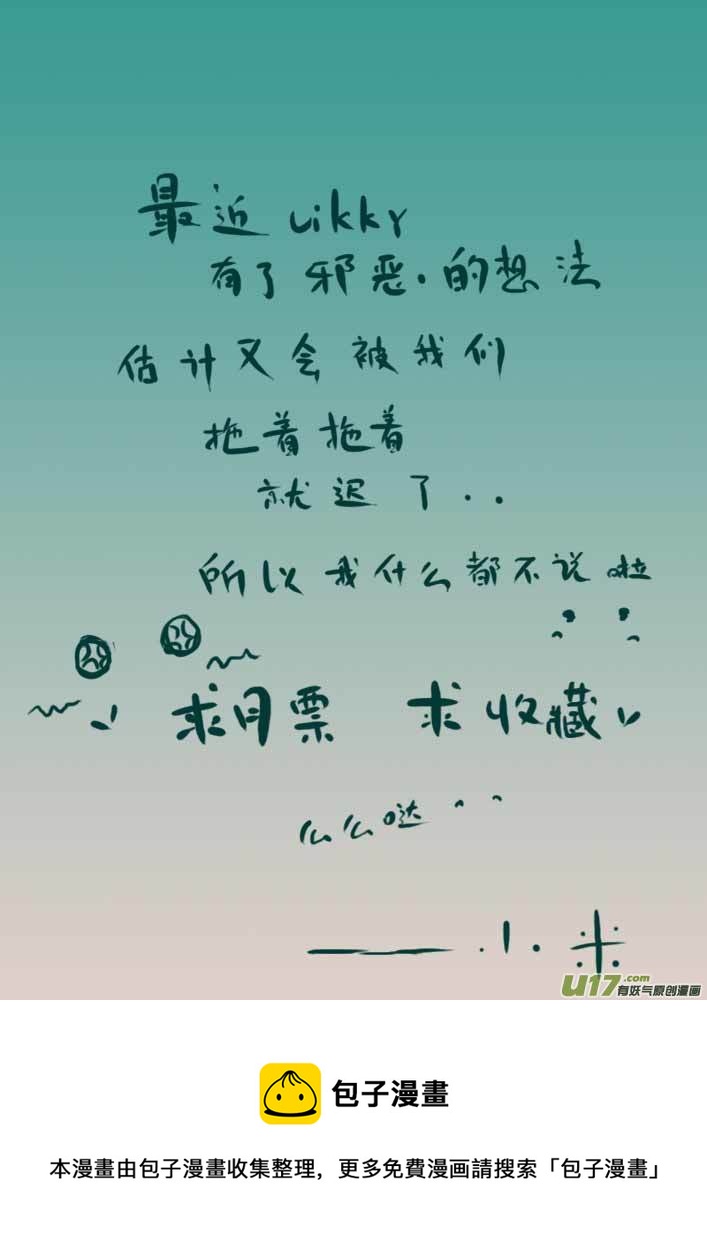 最近 Likky
有了邪恶的想法
估计又会被我们
拖着拖着
就迟了..
所以我什么都不说啦
求月票 求收藏
么么哒
——小米
U17.com
有妖气原创漫画
包子漫畫
本漫畫由包子漫畫收集整理，更多免費漫画請搜索「包子漫畫」